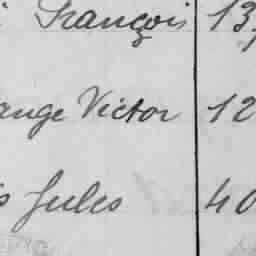 François 13
ange Victor 12
s Jules 40